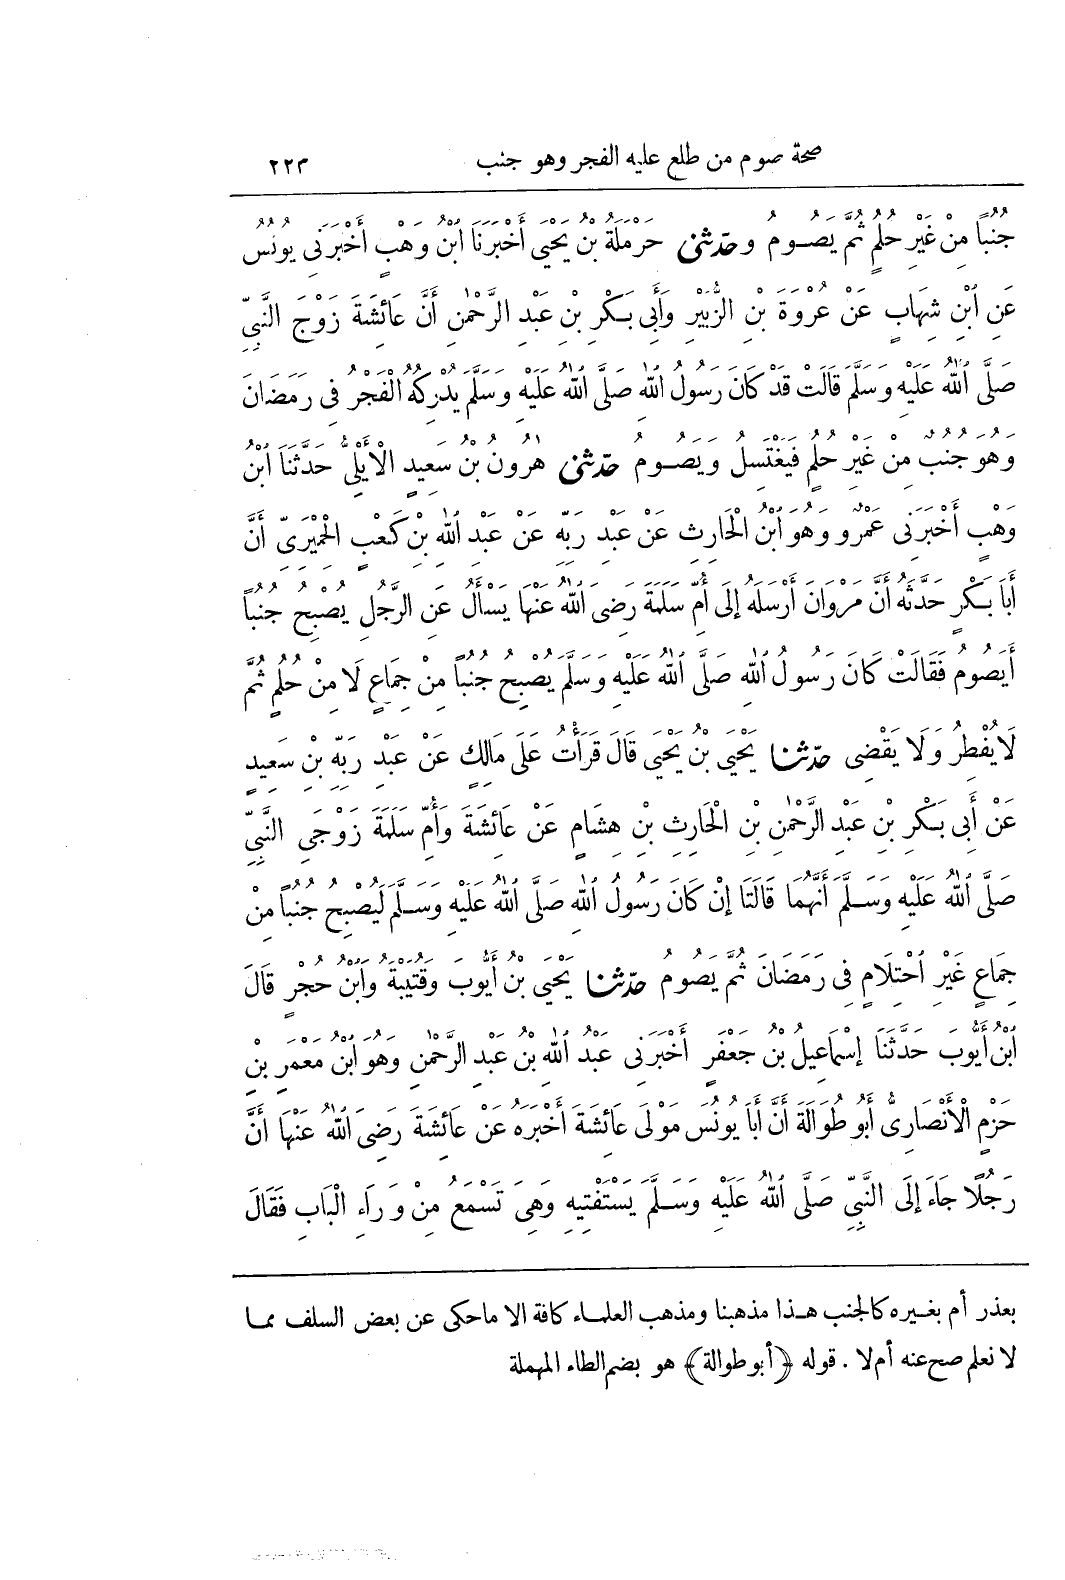 صحة صوم من طلع عليه الفجر وهو جنب ٢٢٣
جُنُبًا مِنْ غَيْرِ حُلُمٍ ثُمَّ يَصُومُ وحَدّثنى حَرْمَلَةُ بْنُ يَحْيَى أَخْبَرَنَا ابْنُ وَهْبٍ أَخْبَرَنِى يُونُسُ
عَنِ ابْنِ شِهَابٍ عَنْ عُرْوَةَ بْنِ الزُّبَيْرِ وَأَبِى بَكْرِ بْنِ عَبْدِ الرَّحْمٰنِ أَنَّ عَائِشَةَ زَوْجَ النَّبِىِّ
صَلَّى اللهُ عَلَيْهِ وَسَلَّمَ قَالَتْ قَدْ كَانَ رَسُولُ اللهِ صَلَّى اللهُ عَلَيْهِ وَسَلَّمَ يُدْرِكُهُ الْفَجْرُ فِى رَمَضَانَ
وَهُوَ جُنُبٌ مِنْ غَيْرِ حُلُمٍ فَيَغْتَسِلُ وَيَصُومُ حَدّثنى هٰرُونُ بْنُ سَعِيدٍ الْأَيْلِىُّ حَدَّثَنَا ابْنُ
وَهْبٍ أَخْبَرَنِى عَمْرٌو وَهُوَ ابْنُ الْحَارِثِ عَنْ عَبْدِ رَبِّهِ عَنْ عَبْدِ اللهِ بْنِ كَعْبٍ الْحِمْيَرِىِّ أَنَّ
أَبَا بَكْرٍ حَدَّثَهُ أَنَّ مَرْوَانَ أَرْسَلَهُ إِلَى أُمِّ سَلَمَةَ رَضِىَ اللهُ عَنْهَا يَسْأَلُ عَنِ الرَّجُلِ يُصْبِحُ جُنُبًا
أَيَصُومُ فَقَالَتْ كَانَ رَسُولُ اللهِ صَلَّى اللهُ عَلَيْهِ وَسَلَّمَ يُصْبِحُ جُنُبًا مِنْ جِمَاعٍ لَا مِنْ حُلُمٍ ثُمَّ
لَا يُفْطِرُ وَلَا يَقْضِى حَدّثنا يَحْيَى بْنُ يَحْيَى قَالَ قَرَأْتُ عَلَى مَالِكٍ عَنْ عَبْدِ رَبِّهِ بْنِ سَعِيدٍ
عَنْ أَبِى بَكْرِ بْنِ عَبْدِ الرَّحْمٰنِ بْنِ الْحَارِثِ بْنِ هِشَامٍ عَنْ عَائِشَةَ وَأُمِّ سَلَمَةَ زَوْجَىِ النَّبِىِّ
صَلَّى اللهُ عَلَيْهِ وَسَلَّمَ أَنَّهُمَا قَالَتَا إِنْ كَانَ رَسُولُ اللهِ صَلَّى اللهُ عَلَيْهِ وَسَلَّمَ لَيُصْبِحُ جُنُبًا مِنْ
جِمَاعٍ غَيْرِ احْتِلَامٍ فِى رَمَضَانَ ثُمَّ يَصُومُ حَدّثنا يَحْيَى بْنُ أَيُّوبَ وَقُتَيْبَةُ وَابْنُ حُجْرٍ قَالَ
ابْنُ أَيُّوبَ حَدَّثَنَا إِسْمَاعِيلُ بْنُ جَعْفَرٍ أَخْبَرَنِى عَبْدُ اللهِ بْنُ عَبْدِ الرَّحْمٰنِ وَهُوَ ابْنُ مَعْمَرِ بْنِ
حَزْمٍ الْأَنْصَارِىُّ أَبُو طُوَالَةَ أَنَّ أَبَا يُونُسَ مَوْلَى عَائِشَةَ أَخْبَرَهُ عَنْ عَائِشَةَ رَضِىَ اللهُ عَنْهَا أَنَّ
رَجُلًا جَاءَ إِلَى النَّبِىِّ صَلَّى اللهُ عَلَيْهِ وَسَلَّمَ يَسْتَفْتِيهِ وَهِىَ تَسْمَعُ مِنْ وَرَاءِ الْبَابِ فَقَالَ
بعذر أم بغيره كالجنب هذا مذهبنا ومذهب العلماء كافة الا ماحكى عن بعض السلف مما
لا نعلم صح عنه أم لا . قوله ﴿أبو طوالة﴾ هو بضم الطاء المهملة